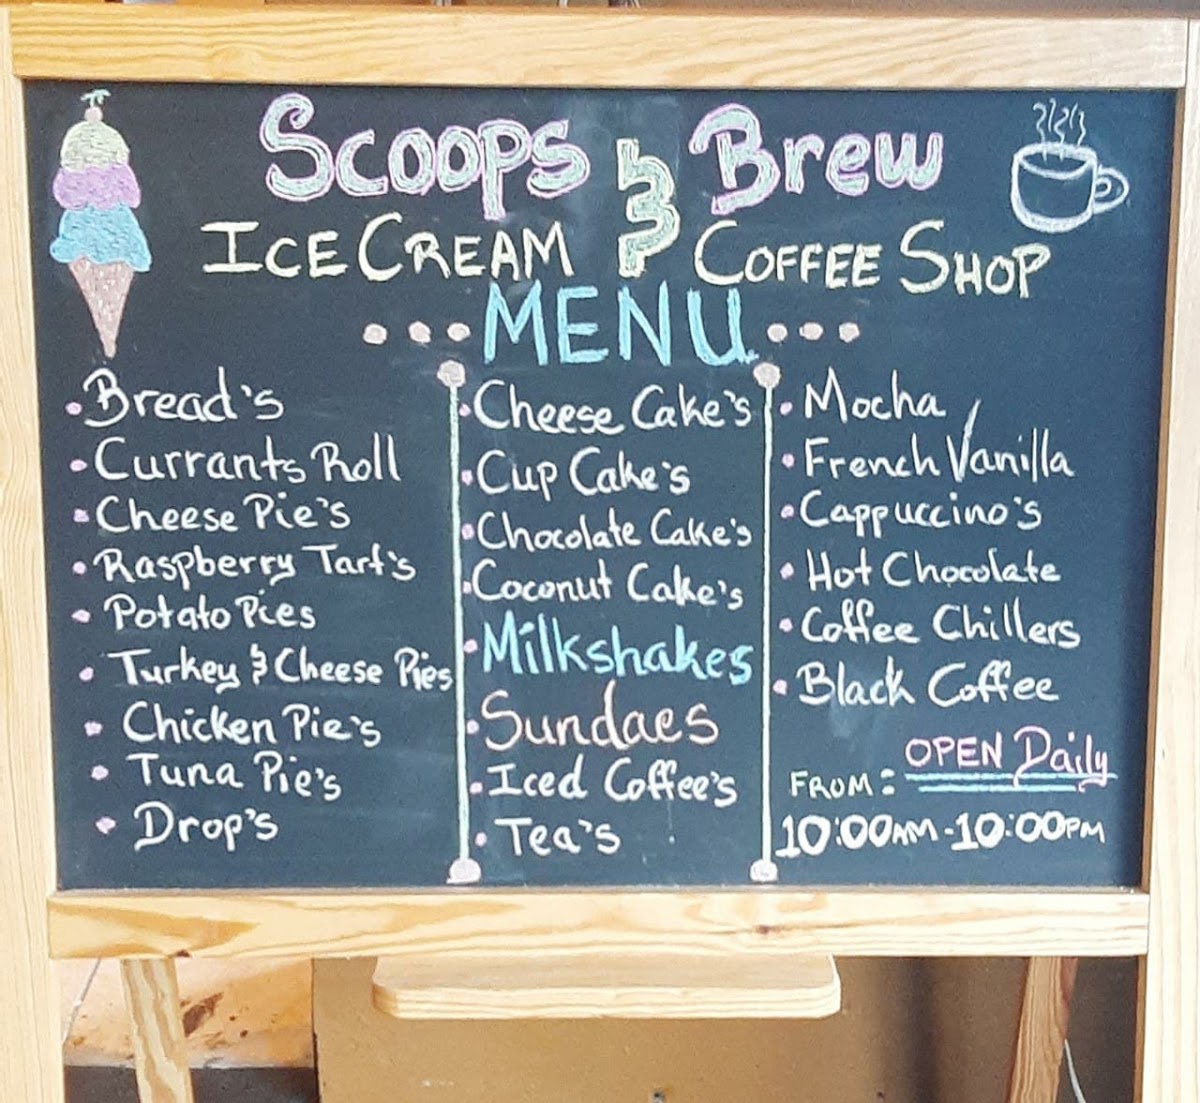 Scoops & Brew
ICE CREAM & COFFEE SHOP
MENU
Bread's
Currants Roll
Cheese Pie's
Raspberry Tart's
Potato Pies
Turkey & Cheese Pies
Chicken Pie's
Tuna Pie's
Drop's
Cheese Cake's
Cup Cake's
Chocolate Cake's
Coconut Cake's
Milkshakes
Sundaes
Iced Coffee's
Tea's
Mocha
French Vanilla
Cappuccino's
Hot Chocolate
Coffee Chillers
Black Coffee
OPEN Daily
FROM:
10:00AM-10:00PM